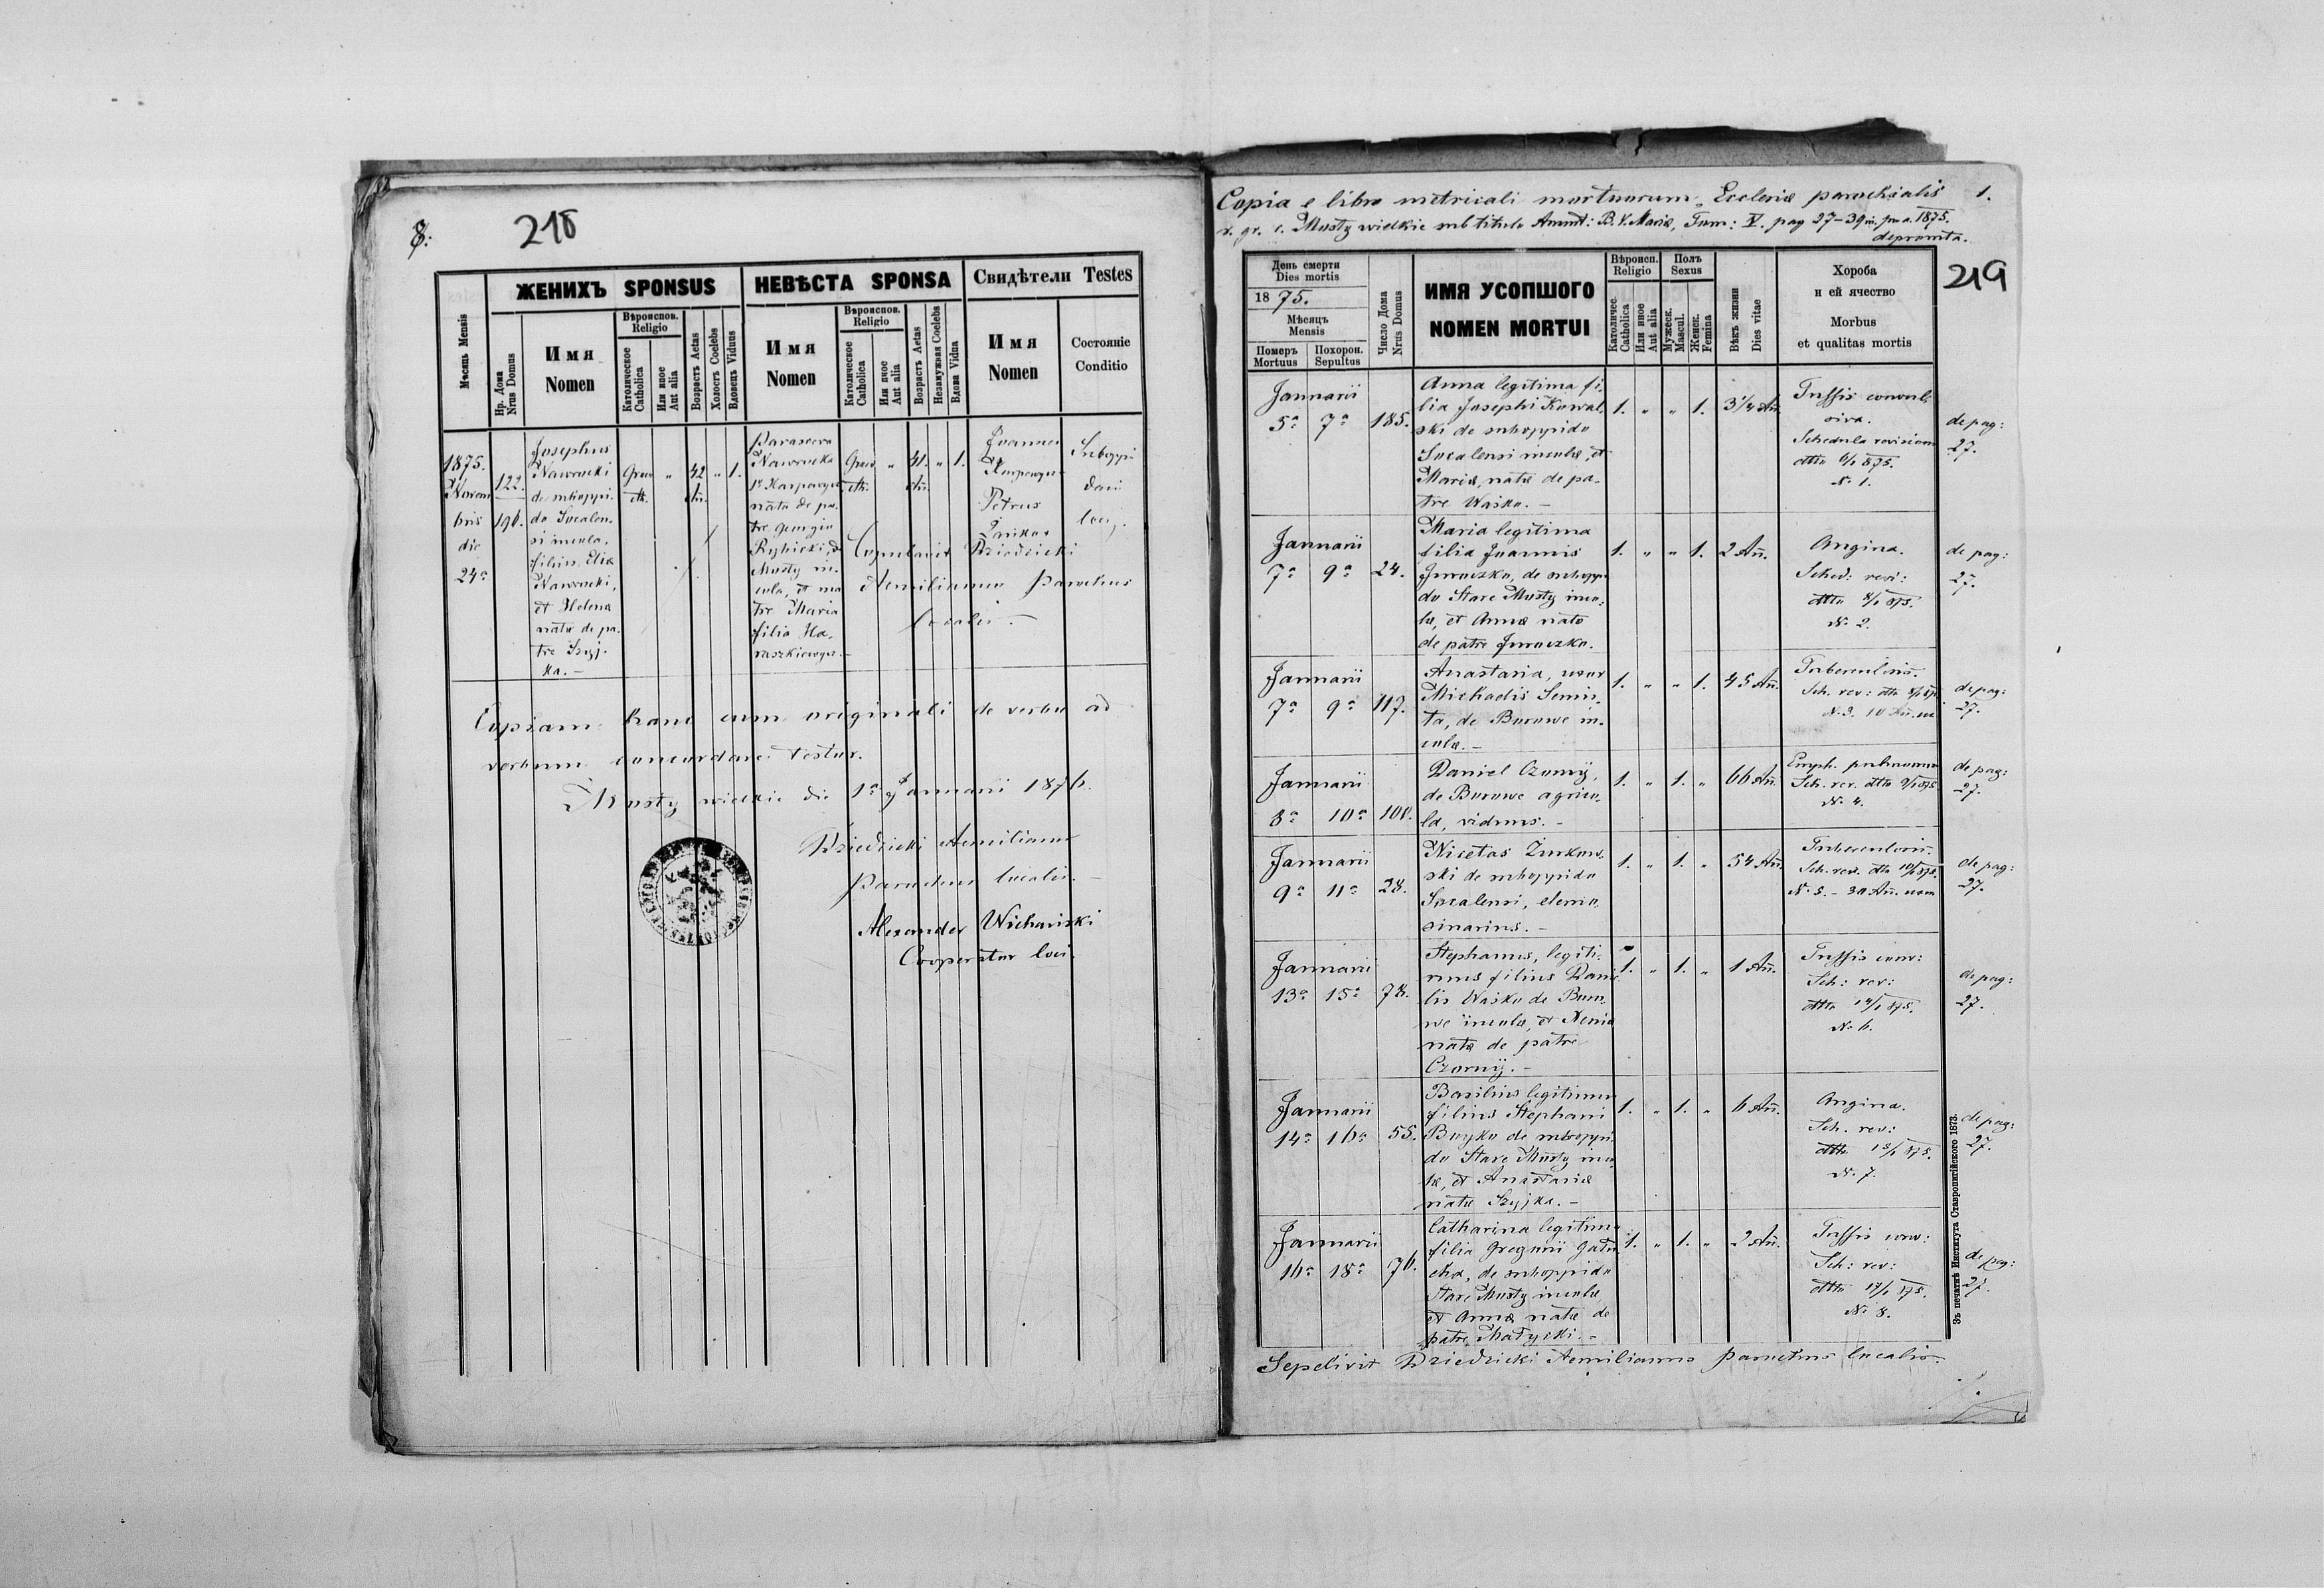 8.
218
ЖЕНИХЪ SPONSUS
НЕВѢСТА SPONSA
Свидѣтели Testes
Мѣсяць Mensis
Нр. Дома
Nrus Domus
Имя
Nomen
Вѣроиспов.
Religio
Католическое
Catholica
Или иное
Aut alia
Возрастъ Aetas
Холостъ Coelebs
Вдовецъ Viduus
Имя
Nomen
Вѣроиспов.
Religio
Католическое
Catholica
Или иное
Aut alia
Возрастъ Aetas
Незамужная Coelebs
Вдова Vidua
Имя
Nomen
Состояніе
Conditio
1875.
Novem
bris
die
24ª
122.
196.
Josephus
Nawrocki
de suboppi-
do Socalen-
si incola,
filius Eliæ
Nawrocki,
et Helenæ
natæ de pa-
tre Szyj-
ka. –
Græc
cth.
„
42
An.
„
1.
Parasceva
Nawrocka
nata de pa-
tre Georgio
Rybicki, de
Mosty in-
cola, et ma
tre Maria
filia Ha-
raszkiewycz. –
Græc
cth.
„
41.
An.
„
1.
Joannes
Karpowycz
Petrus
Suboppi
dani
locij.
Copulavit Dziedzicki
Aemilianus Parochus
localis. –
Copiam hanc cum originali de verbo ad
verbum concordare testor.
Mosty wielkie die 1ª Januarii 1876.
Dziedzicki Aemilianus
Parochus localis. –
Alexander Wichański
Cooperator loci.
Copia e libro metricali mortuorum, Ecclesiæ parochialis 1.
r. gr. c. Mosty wielkie sub titulo Annunt: B. V. Mariæ, Tom: V. pag 27–39 in. pro a. 1875.
depromta.
219
День смерти
Dies mortis
1875.
Мѣсяцъ
Mensis
Померъ
Mortuus
Похорон.
Sepultus
Число Дома
Nrus Domus
ИМЯ УСОПШОГО
NOMEN MORTUI
Вѣроисп.
Religio
Католичес.
Catholica
Или иное
Aut alia
Полъ
Sexus
Мужеск.
Mascul.
Женск.
Femina
Вѣкъ жизни
Dies vitae
Хороба
и ей ячество
Morbus
et qualitas mortis
Januarii
5ª 7ª 185.
Anna legitima fi-
lia Josephi Kowal-
ski de suboppido
Socalensi incolæ, et
Mariæ, natæ de pa-
tre Wasko. –
1. „ „ 1. 3 1/4 An.
Tussis convul-
siva.
Schedula revisionis
dtto 6/1 875.
N. 1.
de pag:
27.
Januarii
7ª 9ª 24.
Maria legitima
filia Joannis
Juroczko, de subopp-
do Stare Mosty inco-
læ, et Annæ nato
de patre Juroczko.
1. „ „ 1. 2 An.
Angina.
Sched: rev:
dtto 8/1 875.
N. 2.
de pag:
27.
Januarii
7ª 9ª 117.
Anastasia, uxor
Michaelis Semis-
ta, de Borowe in-
colæ. –
1. „ „ 1. 45 An.
Tuberculosis.
Sch. rev: dtto 8/1 875.
N. 3. 10 An. m
de pag:
27.
Januarii
8ª 10ª 100.
Daniel Czornij,
de Borowe agrico-
la, viduus. –
1. „ 1. „ 66 An.
Emph. pulmonum
Sch. rev. dtto 9/1 875.
N. 4.
de pag:
27.
Januarii
9ª 11ª 28.
Nicetas Żurkow-
ski de suboppido
Socalensi, elemo-
sinarius. –
1. „ 1. „ 54 An.
Tuberculosis.
Sch. rev. dtto 10/1 875.
N. 5. – 30 An. uxor
de pag:
27.
Januarii
13ª 15ª 78.
Stephanus, legiti-
mus filius Danie-
lis Wasko de Boro-
we incolæ, et Xenia
natæ de patre
Czornij. –
1. „ 1. „ 1 An.
Tussis conv:
Sch: rev:
dtto 14/1 875.
N. 6.
de pag:
27.
Januarii
14ª 16ª 55.
Basilius legitimus
filius Stephani
Buyko de suboppi-
do Stare Mosty inco-
læ, et Anastasiæ
natæ Szyjka. –
1. „ 1. „ 6 An.
Angina.
Sch. rev:
dtto 15/1 875.
N. 7.
de pag:
27.
Januarii
16ª 18ª 76.
Catharina legitima
filia Gregorii
de suboppido
Stare Mosty incolæ
et Annæ natæ de
patre Matycki. –
1. „ 1. „ 2 An.
Tussis conv:
Sch: rev:
dtto 17/1 875.
N. 8.
de pag:
27.
Sepelivit Dziedzicki Aemilianus parochus localis.
Зъ печатнѣ Института Ставропигійского 1873.